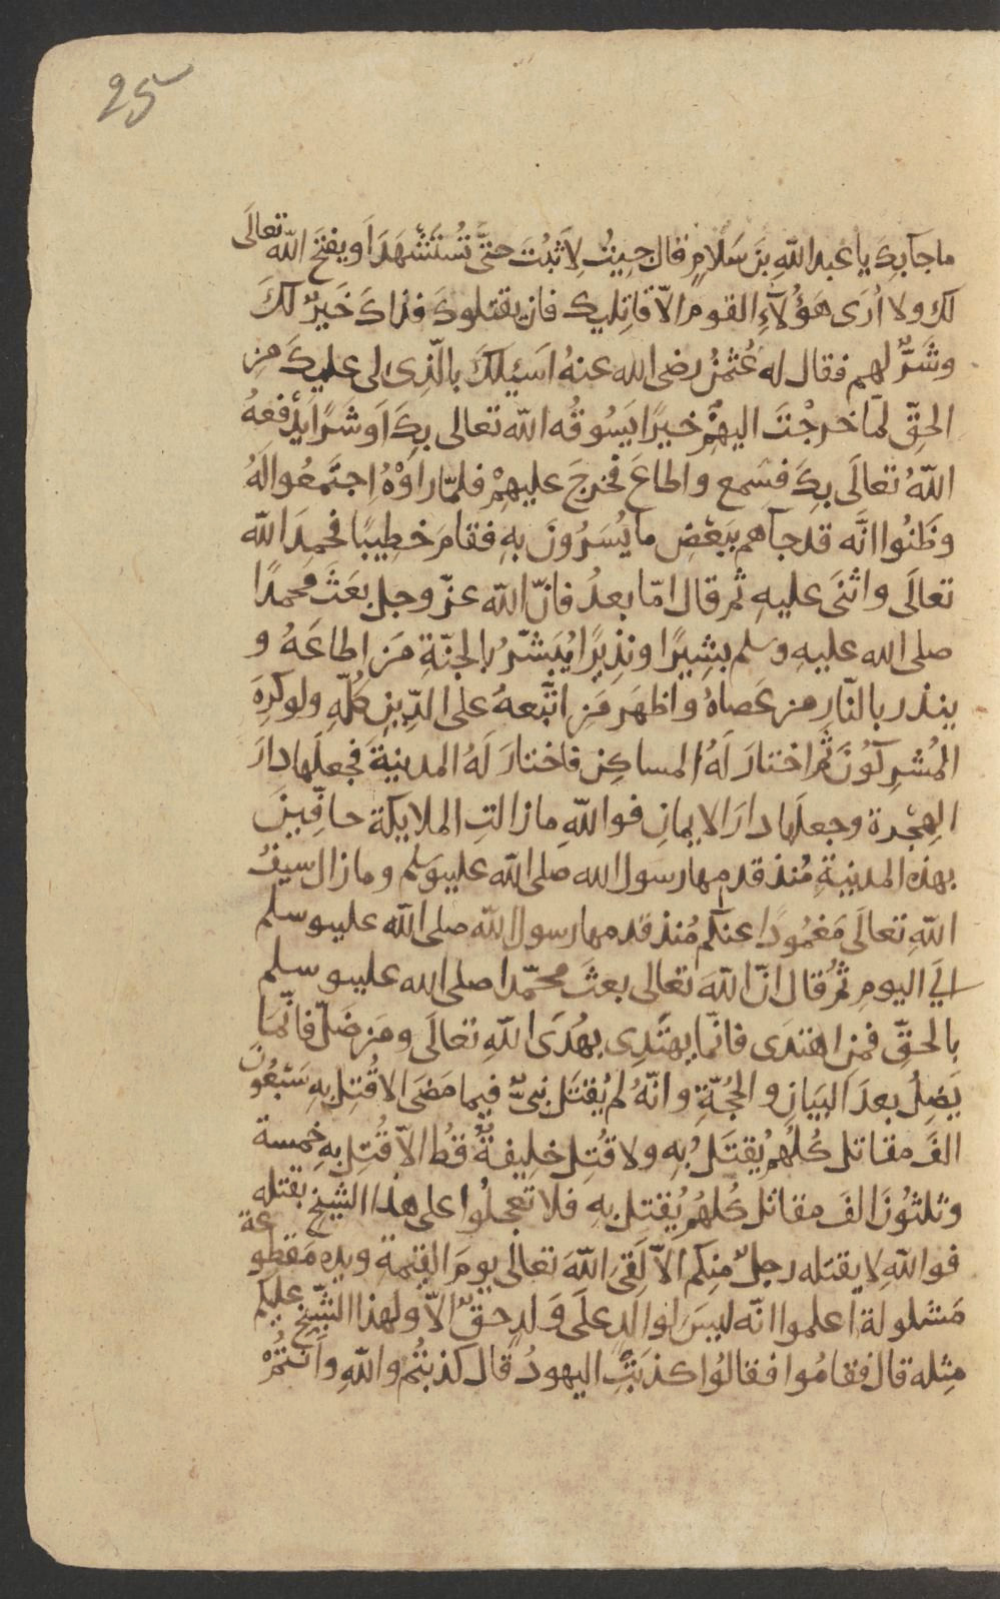 25
ماجآ بِكَ يا عبد اللهِ بنَ سَلَامٍ قال جِيتُ لِاَثبُتَ حتَّى تُسْتَشْهَدَ اَو يفتَحَ اللّه تعالَى
لك ولا اُرَى هَؤُلَآءِ القوم الّا قاتِليك فان يقتلوكَ فذاكَ خَيرٌ لكَ
وشَرٌّ لهم فقال له عُثمٰنُ رضى الله عنهُ اَسئِلكَ بالّذِى لى عليكَ مِن
الحقِّ لمّا خرجْتَ اليهِمْ خيرًا يَسُوقُه اللّه تعالى بِكَ اَو شَرًّا يَدْفعهُ
اللّهُ تعالَى بِكَ فسَمع واطاعَ فخرجَ عليهِمْ فلمّا راَوْهُ اجتَمعُوا لهُ
وظَنُوا انَّه قد جآهم ببَعْضِ ما يُسَرُّونَ بهِ فقامَ خطِيبًا فحمِدَ اللّه
تعالَى واثنَى عليهِ ثم قال امّا بعدُ فانّ اللّه عزّ وجل بعَثَ محمدًا
صلى الله عليهِ وسلم بشِيرًا ونذِيرًا يُبَشّرُ بالجنّةِ مَن اطاعَهُ و
ينذر بالنّارِ من عَصاهُ واظهَر مَنِ اتّبعهُ على الدِّينِ كُلّهِ ولو كرِهَ
المُشرِكُونَ ثم اختارَ لَهُ المساكِن فاختارَ لَهُ المدينةَ فجعلَها دارَ
الهِجْرة وجعلَها دارَ الايمانِ فوَاللّهِ ما زالتِ الملايكة حافّينَ
بهذه المدينةِ مُنذ قدمها رسول الله صلى اللّه عليهوسلم وما زال سيفُ
اللّهِ تعالَى مَغمُودًا عنكم مُنذ قدمها رسول اللّه صلى اللّه عليهوسلم
الى اليومِ ثمُ قال انّ اللّهَ تعالى بعثَ محمّدا صلى الله عليهوسلم
بالحقِّ فمنِ اهتدَى فانّما يهتَدِى بهُدَى اللّهِ تعالَى ومَن ضَلّ فانّما
يَضِلُ بعدَ البَيانِ والحُجّةِ وانّهُ لم يُقتَل نبىٌّ فيما مَضَى الا قُتِل بهِ سَبْعُونَ
الفَ مقاتل كُلُهُم يُقتَلُ بهِ ولا قُتِل خليفةٌ قطُ الاّ قُتِل بهِ خمسة
وثلثُونَ الفَ مقاتل كُلهُم يُقتل بهِ فلا تعجلُوا على هذا الشيخ بقتله
فواللّهِ لا يقتله رجلٌ مِنكم الاّ لَقِىَ اللّهَ تعالى يومَ القيٰمةِ ويده مَقطوعة
مَشلولة اعلموا انّه ليسَ لوالدٍ علَى وَلدٍ حقٌ الاّ ولهذا الشّيخ عليكم
مِثله قال فقامُوا فقالُوا كذبَتِ اليهودُ قال كذبتُم واللّهِ وانتُمْ